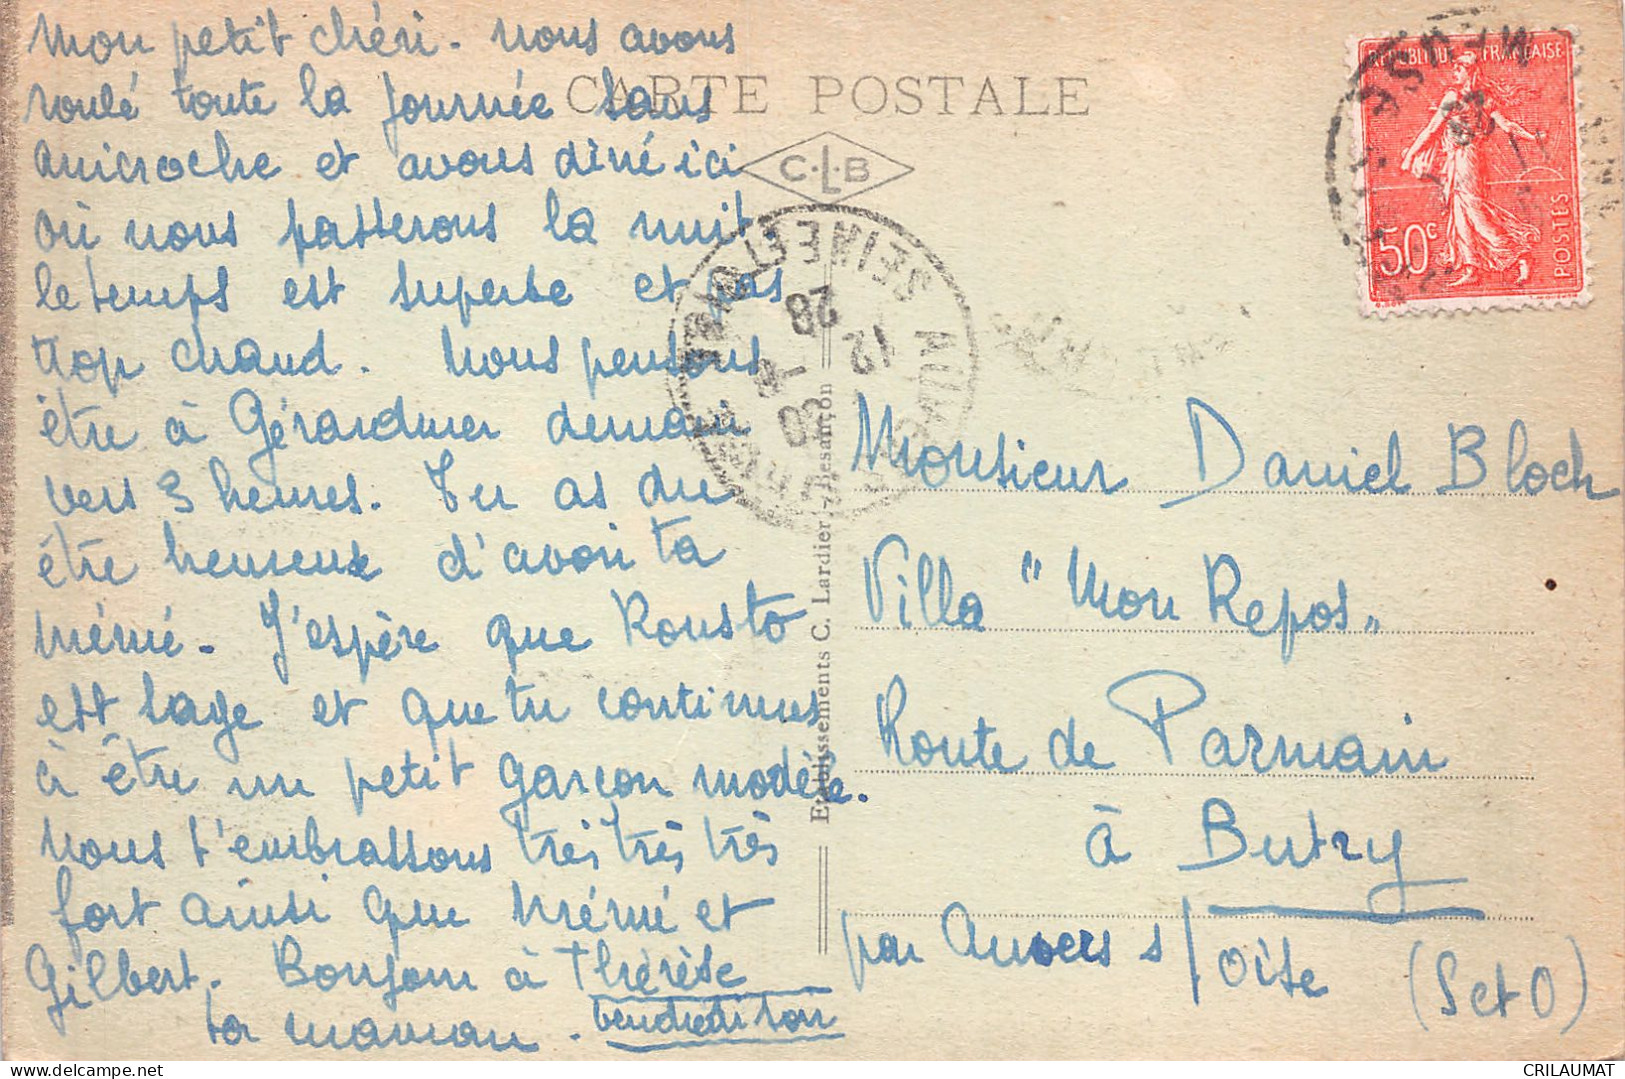 Mon petit chéri. Nous avons
roulé toute la journée sans
anicroche et avons dîné ici
où nous passerons la nuit.
le temps est superbe et pas
trop chaud. Nous pensons
être à Gérardmer demain
vers 3 heures. Tu as du
être heureux d'avoir ta
mémé. J'espère que Rousto
est sage et que tu continues
à être un petit garçon modèle.
Nous t'embrassons très très très
fort ainsi que mémé et
Gilbert. Bonjour à Thérèse
ta maman. Vendredi soir
CARTE POSTALE
C.L.B
Etablissements C. Lardier - Besançon
SEINE ET OISE
12
28
REPUBLIQUE FRANÇAISE
50c
POSTES
MEUSE
Monsieur Daniel Bloch
Villa "Mon Repos"
Route de Parmain
à Butry
par Auvers s/Oise (S et O)
CRILAUMAT